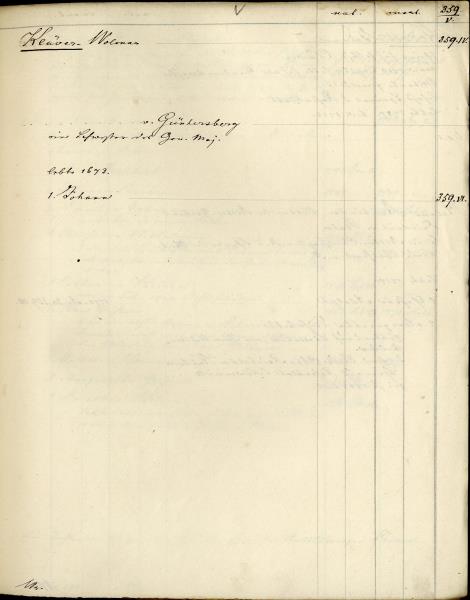 V nat. mort. 359
V.
Klüver. Wolmar 359.IV.
v. Güntersberg
eine Schwester des Gen. Maj.
lebte 1673.
1. Johann 359.VI.